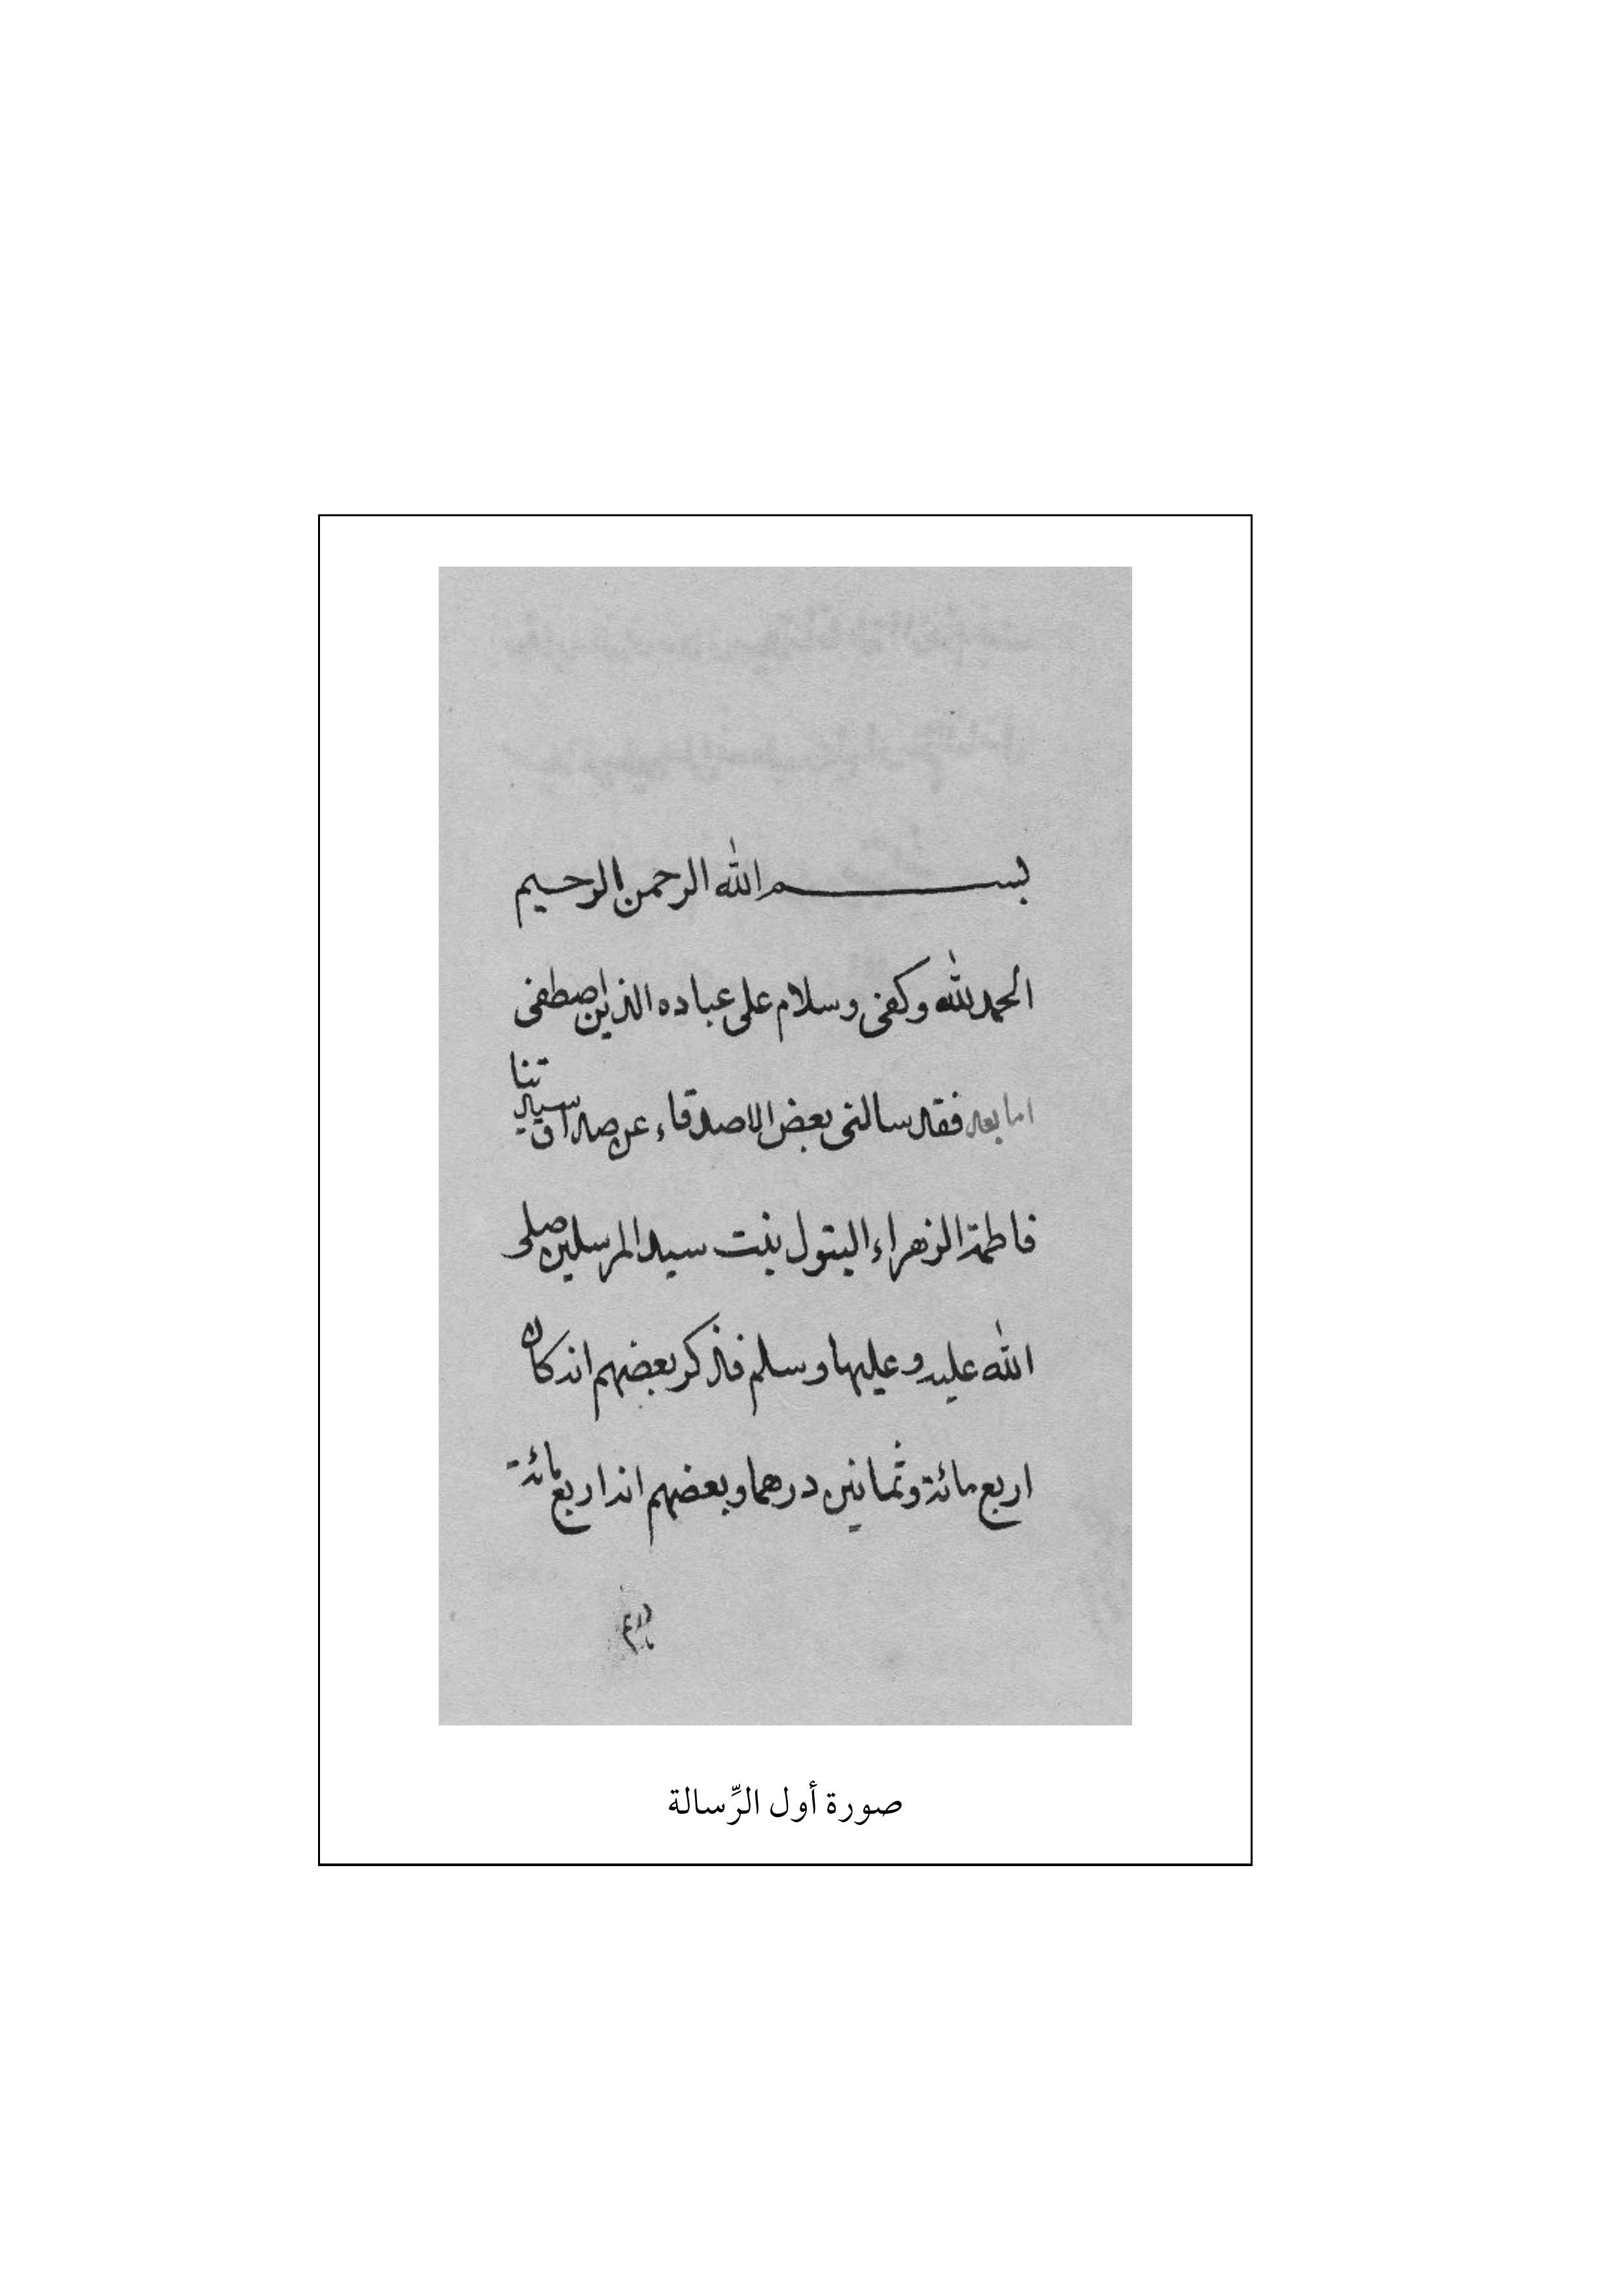 بسم الله الرحمن الرحيم
الحمد لله وكفى وسلام على عباده الذين اصطفى
اما بعد فقد سالنى بعض الاصدقاء عن صداق سيدتنا
فاطمة الزهراء البتول بنت سيد المرسلين صلى
الله عليه وعليها وسلم فذكر بعضهم انه كان
اربع مائة وثمانين درهما وبعضهم انه اربع مائة
صورة أول الرِّسالة